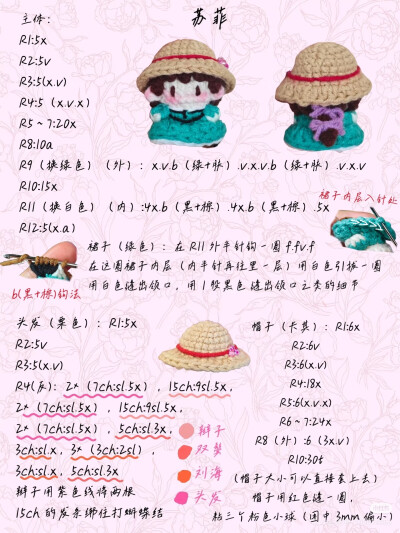 苏菲
主体:
R1:5x
R2:5v
R3:5(x.v)
R4:5 (x.v.x)
R5~7:20x
R8:10a
R9 (换绿色) (外): x.v.b (绿+肤) .v.x.v.b (绿+肤) .v.x.v
R10:15x
R11 (换白色) (内) :4x.b (黑+棕) .4x.b (黑+棕) .5x
R12:5(x.a)
裙子内层入针处
b(黑+棕)钩法
裙子 (绿色) : 在 R11 外半针钩一圈 f.fv.f
在这圈裙子内层 (内半针再往里一层) 用白色引拔一圈
用白色缝出领口, 用1股黑色缝出领口之类的细节
头发 (栗色) : R1:5x
R2:5v
R3:5(x.v)
R4(反): 2* (7ch:sl.5x) , 15ch:9sl.5x,
2* (7ch:sl.5x) , 15ch:9sl.5x,
2* (7ch:sl.5x) , 5ch:sl.3x,
3ch:sl.x, 3* (3ch:2sl) ,
3ch:sl.x, 5ch:sl.3x
辫子用紫色线将两根
15ch 的发条绑住打蝴蝶结
辫子
双鬓
刘海
头发
帽子 (卡其) : R1:6x
R2:6v
R3:6(x.v)
R4:18x
R5:6(x.v.x)
R6~7:24x
R8 (外) :6 (3x.v)
R10:30t
(帽子大小可以直接套上去)
帽子用红色缝一圈,
粘三个粉色小球 (图中 3mm 偏小)